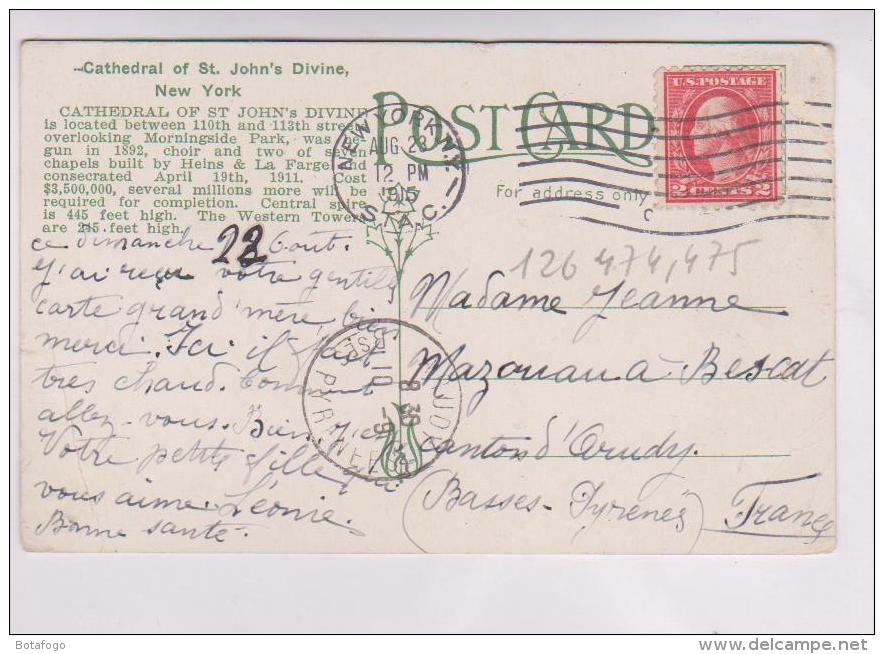 Cathedral of St. John's Divine,
New York
CATHEDRAL OF ST JOHN'S DIVINE
is located between 110th and 113th street
overlooking Morningside Park, was be-
gun in 1892, choir and two of seven
chapels built by Heins & La Farge and
consecrated April 19th, 1911. Cost
$3,500,000, several millions more will be
required for completion. Central spire
is 445 feet high. The Western Towers
are 245 feet high.
POST CARD
For address only
NEW YORK, N.Y.
AUG 23
12 PM
1915
STA. C.
U.S. POSTAGE
2 CENTS 2
ce dimanche 22 Aout.
J'ai reçu votre gentille
carte grand'mère, bien
merci. Ici il fait
très chaud. Comment
allez-vous. Bien, j'esp
Votre petite fille qui
vous aime. Léonie.
Bonne santé.
126 474,475
Madame Jeanne
Mazouau à Bescat
Canton d'Arudy.
(Basses-Pyrenés) France
8 30
10 -9
Botafogo
www.delcampe.net